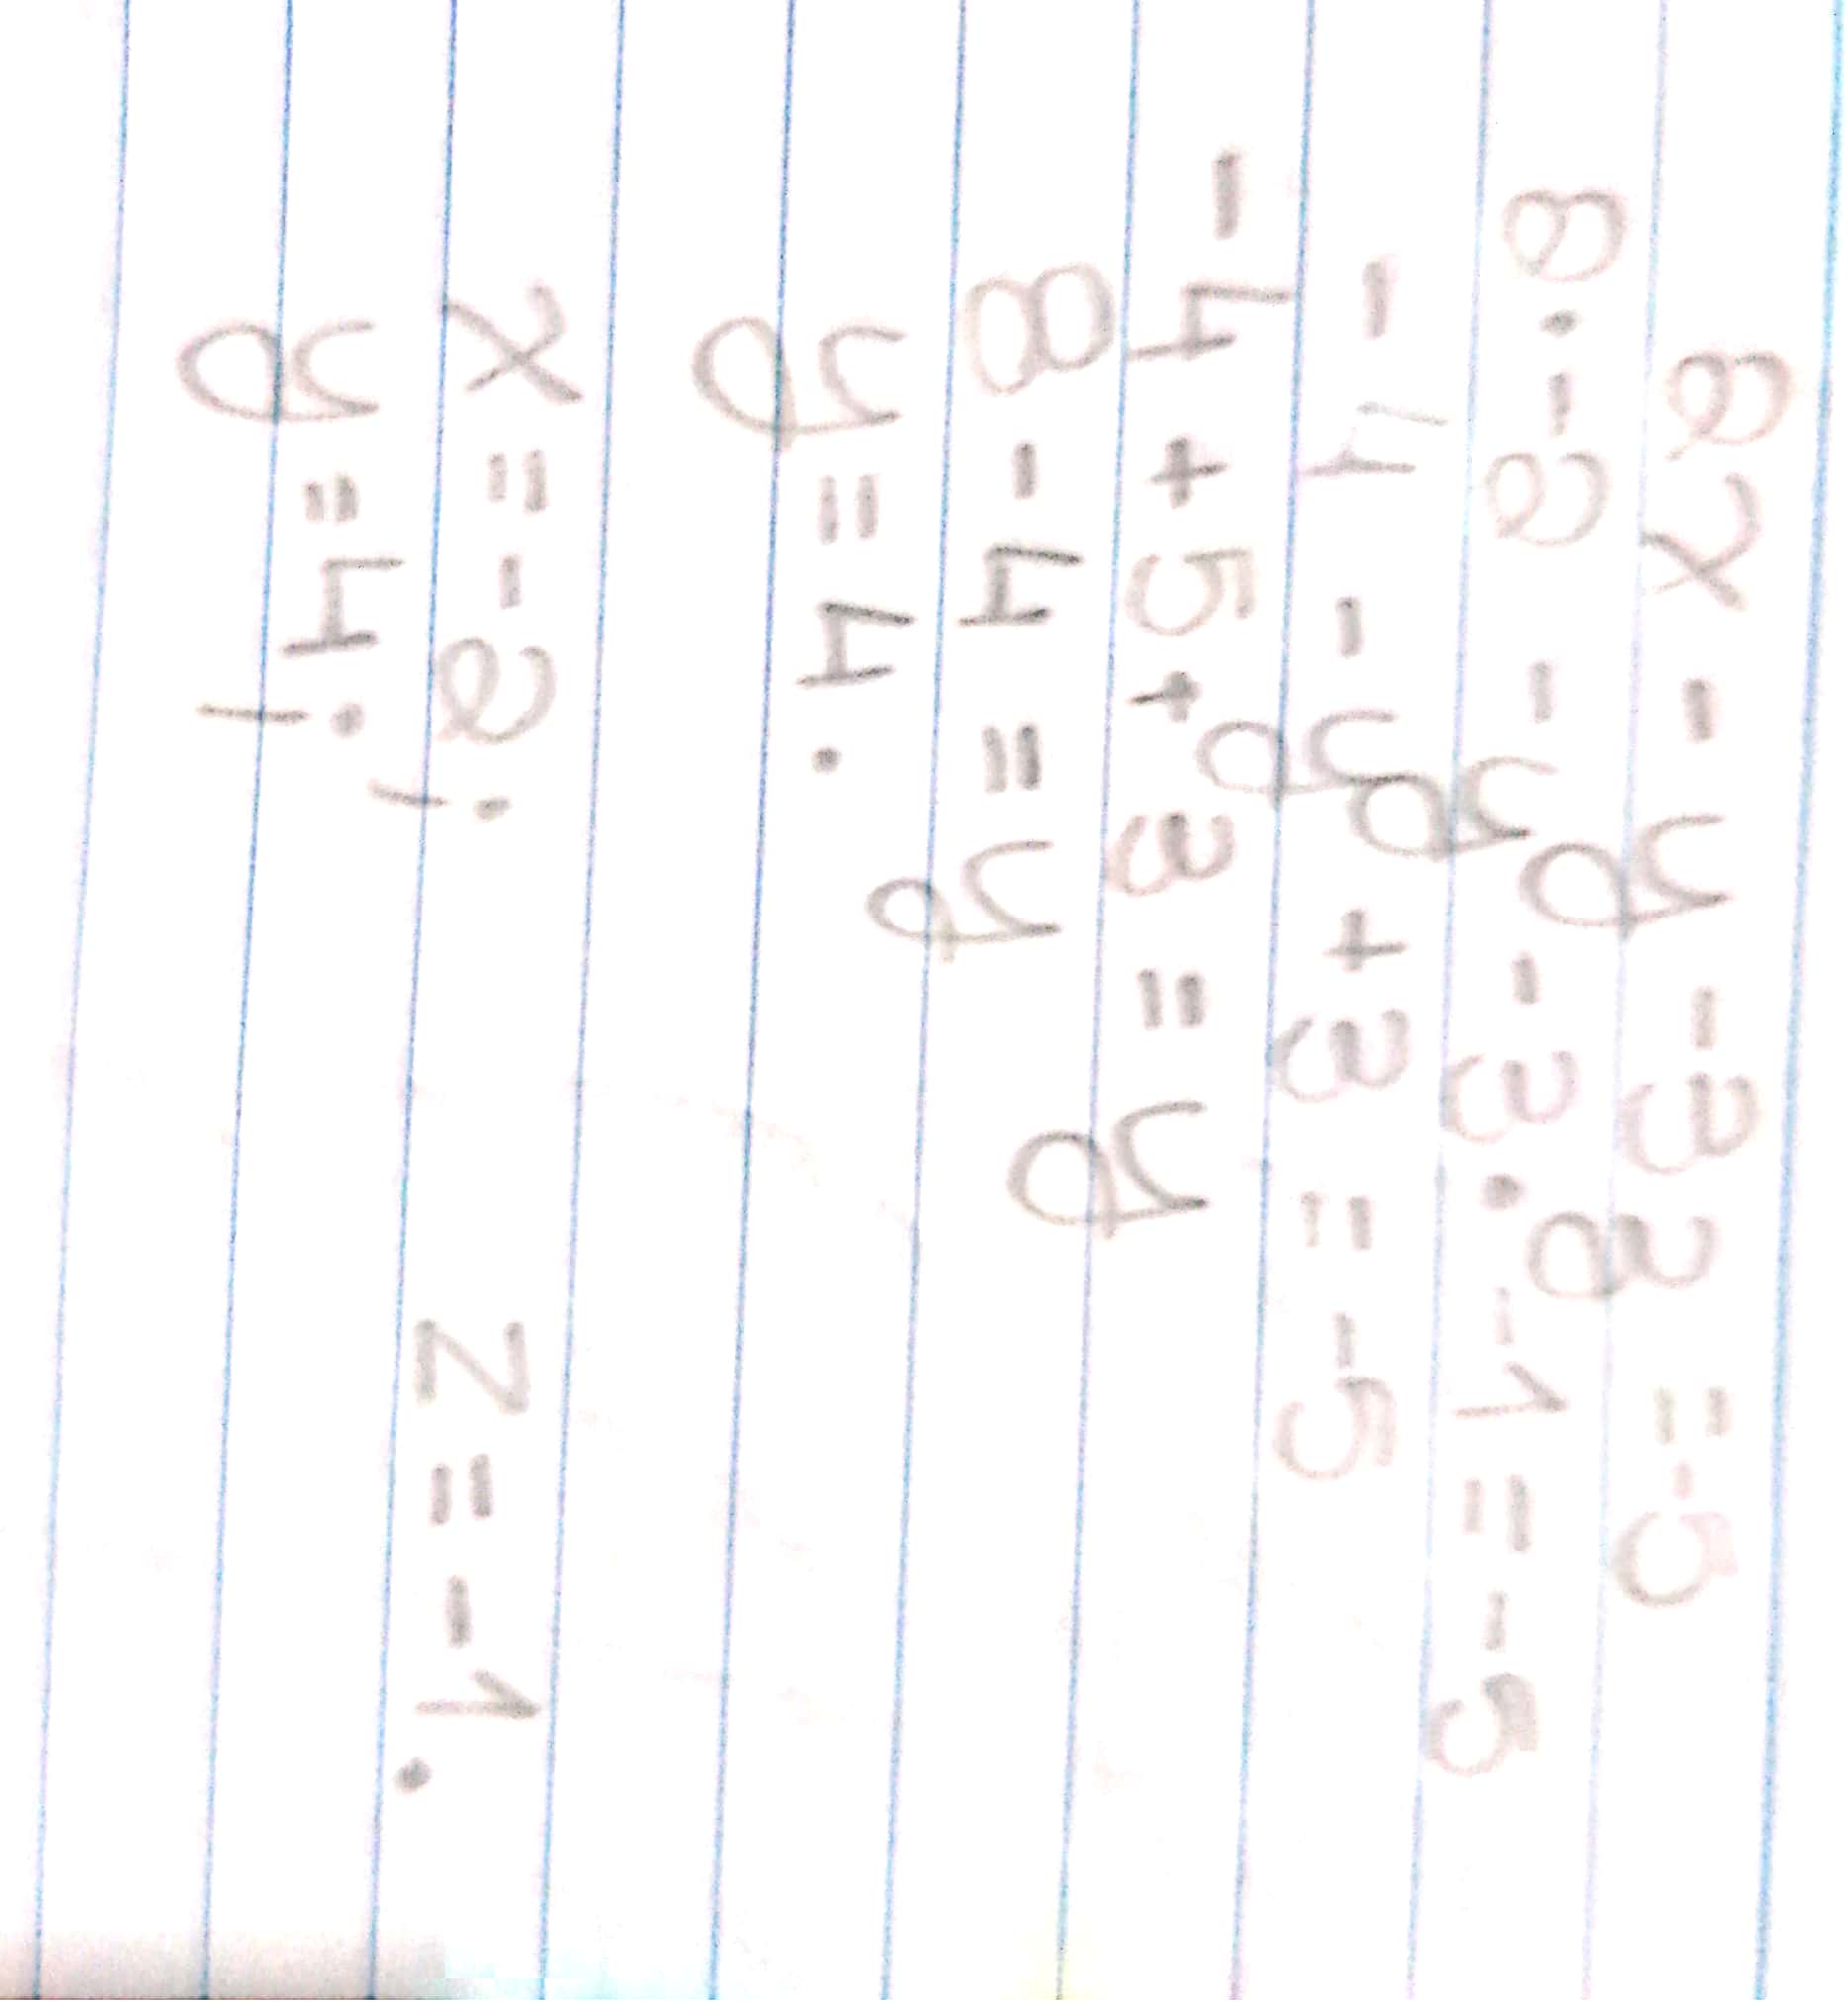 2x - y - 3z = -5
2·-2 - y - 3·-1 = -5
-4 - y + 3 = -5
-4 + 5 + 3 = y
8 - 4 = y
y = 4.
x = -2; z = -1.
y = 4;